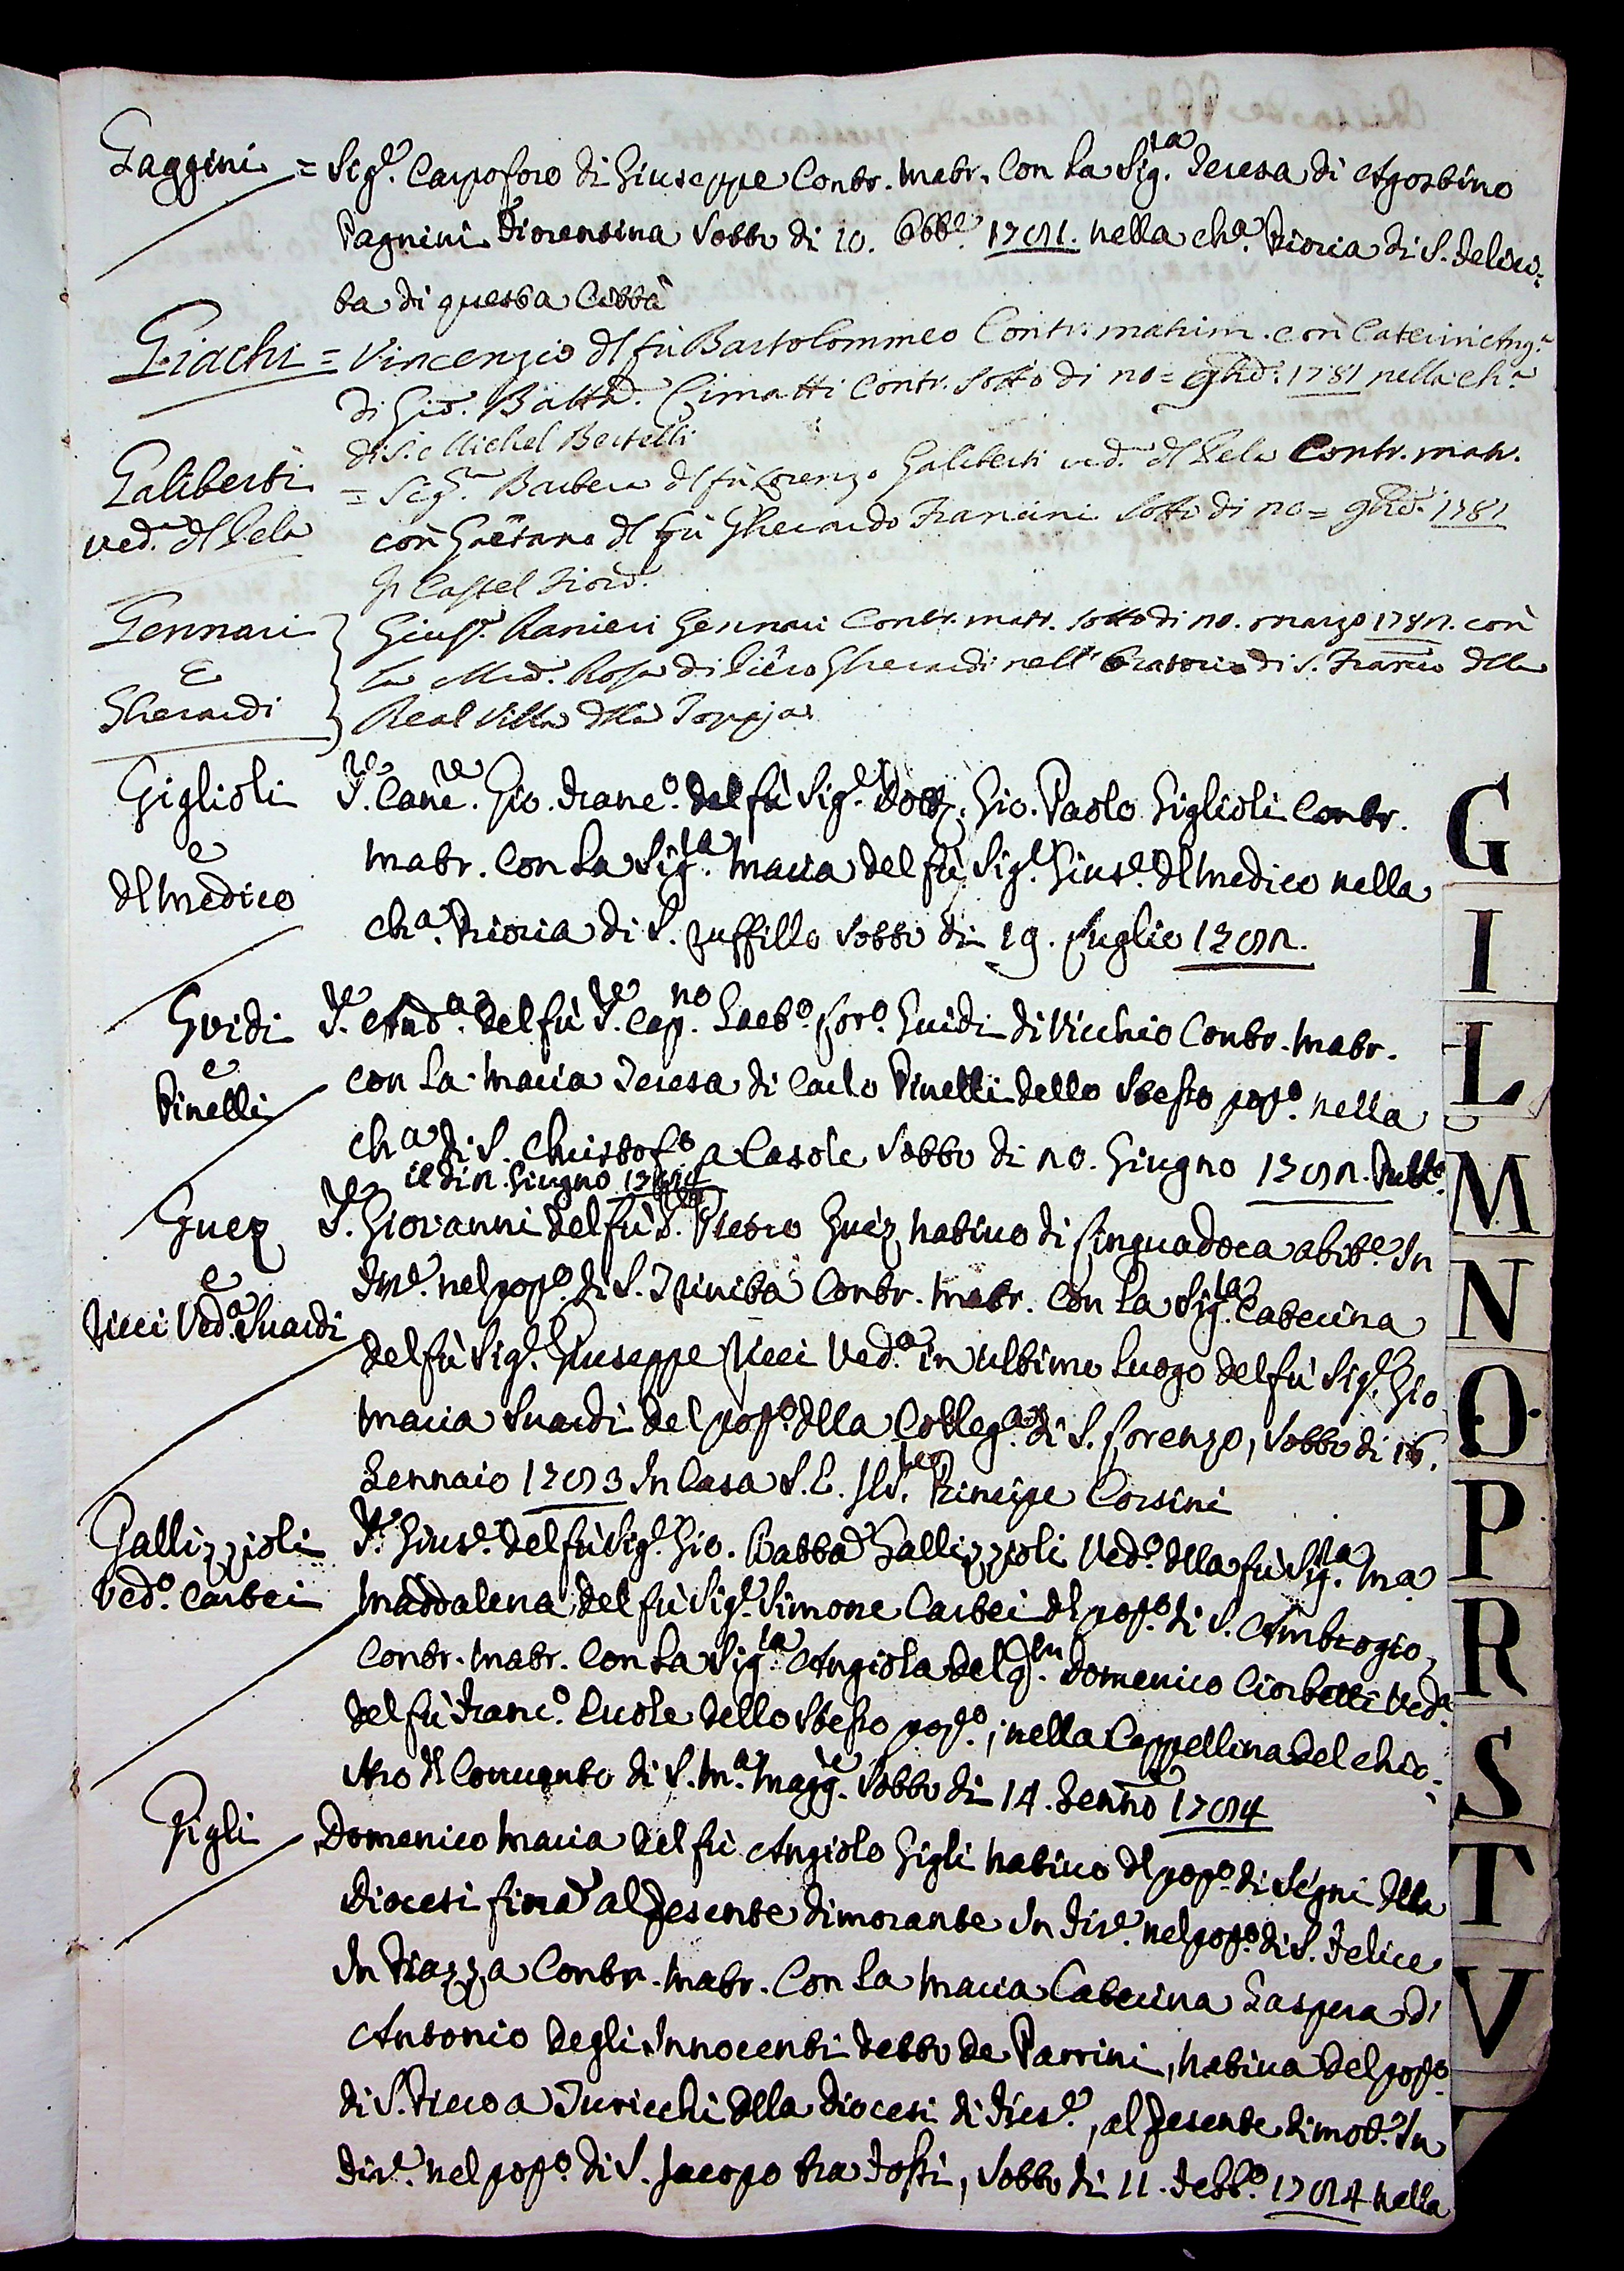 Gaggini = Sig.e Carpoforo di Giuseppe Contr. matr. Con la Sig.ra Teresa di Agostino
Pagnini Fiorentina sotto di 10. Obbe 1781. nella cha Prioria di S. Felici:
ta di questa Città
Giachi = Vincenzio dl fù Bartolommeo Contr. matrim. con Caterin' Ang.a
di Gio: Batta. Cimatti Contr. sotto di 20= 9bre 1781 nella cha
di S. Michel Bertelli
Galiberti = Sig.ra Barbera dl fù Lorenzo Galiberti ved.a dl Sela Contr. matr.
ved.a dl Sela con Gaetano dl fù Gherardo Francini sotto di 20= 9bre 1781
p Castel Fior.
Gennari Giusp.e Ranieri Gennari Contr. matr. sotto di 20. marzo 1782. con
E la Mad. Rosa di Piero Gherardi nell' Oratorio di S. Franco dlla
Gherardi Real Villa dlla Topaja
Giglioli S.re Canc.re Gio. Franc.o del fù Sig.e Dott. Gio. Paolo Giglioli Contr.
e matr. Con la Sig.ra Maria del fù Sig.e Gius.e dl Medico nella
dl Medico cha. Prioria di S. Ruffillo sotto di 19. Luglio 1782.
Guidi S.re And.a del fù S.re Cap.no Gaet.o Lor.o Guidi di Vicchio Contr. matr.
e con la Maria Teresa di Carlo Pinelli dello stesso pop.o nella
Pinelli cha di S. Christof.o a Casole sotto di 20. Giugno 1782. Pubb.
il di 2. Giugno 1784
Guez S.re Giovanni del fù S.re Pietro Guez nativo di Linguadoca abit.e In
e Fir.e nel pop.o di S. Trinita Contr. matr. Con la Sig.ra Caterina
Ricci Ved.a Suardi del fù Sig.e Giuseppe Ricci Ved.a in ultimo luogo del fù Sig.e Gio
Maria Suardi del pop.o dlla Colleg.a di S. Lorenzo, sotto di 16.
Gennaio 1783 In Casa S. E. Principe Corsini
Gallizzioli S.re Gius.e del fù Sig.e Gio. Batta Gallizzioli Ved.o dlla fù Sig.ra Ma
Ved.o Cartei Maddalena del fù Sig.e Simone Cartei dl pop.o di S. Ambrogio,
Contr. matr. Con la Sig.ra Angiola del q.m Domenico Ciorbetti Ved.a
del fù Franc.o dello stesso pop.o, nella Cappellina del chio:
stro dl Convento di S. M.a Magg.re sotto di 14. Genn.o 1784
Gigli Domenico Maria del fù Angiolo Gigli nativo dl pop.o di Segni dlla
Diocesi fiora al presente dimorante In Fir.e nel pop.o di S. Felice
In Piazza Contr. matr. Con la Maria Caterina Gaspera di
Antonio degli Innocenti detto de Parrini, nativa del pop.o
di S. Piero a Turicchi dlla Diocesi di Fies.e, al presente dimot.e In
Fir.e nel pop.o di S. Jacopo tra Fossi, sotto di 11. Febb.o 1784 nella
G
I
L
M
N
O
P
R
S
T
V